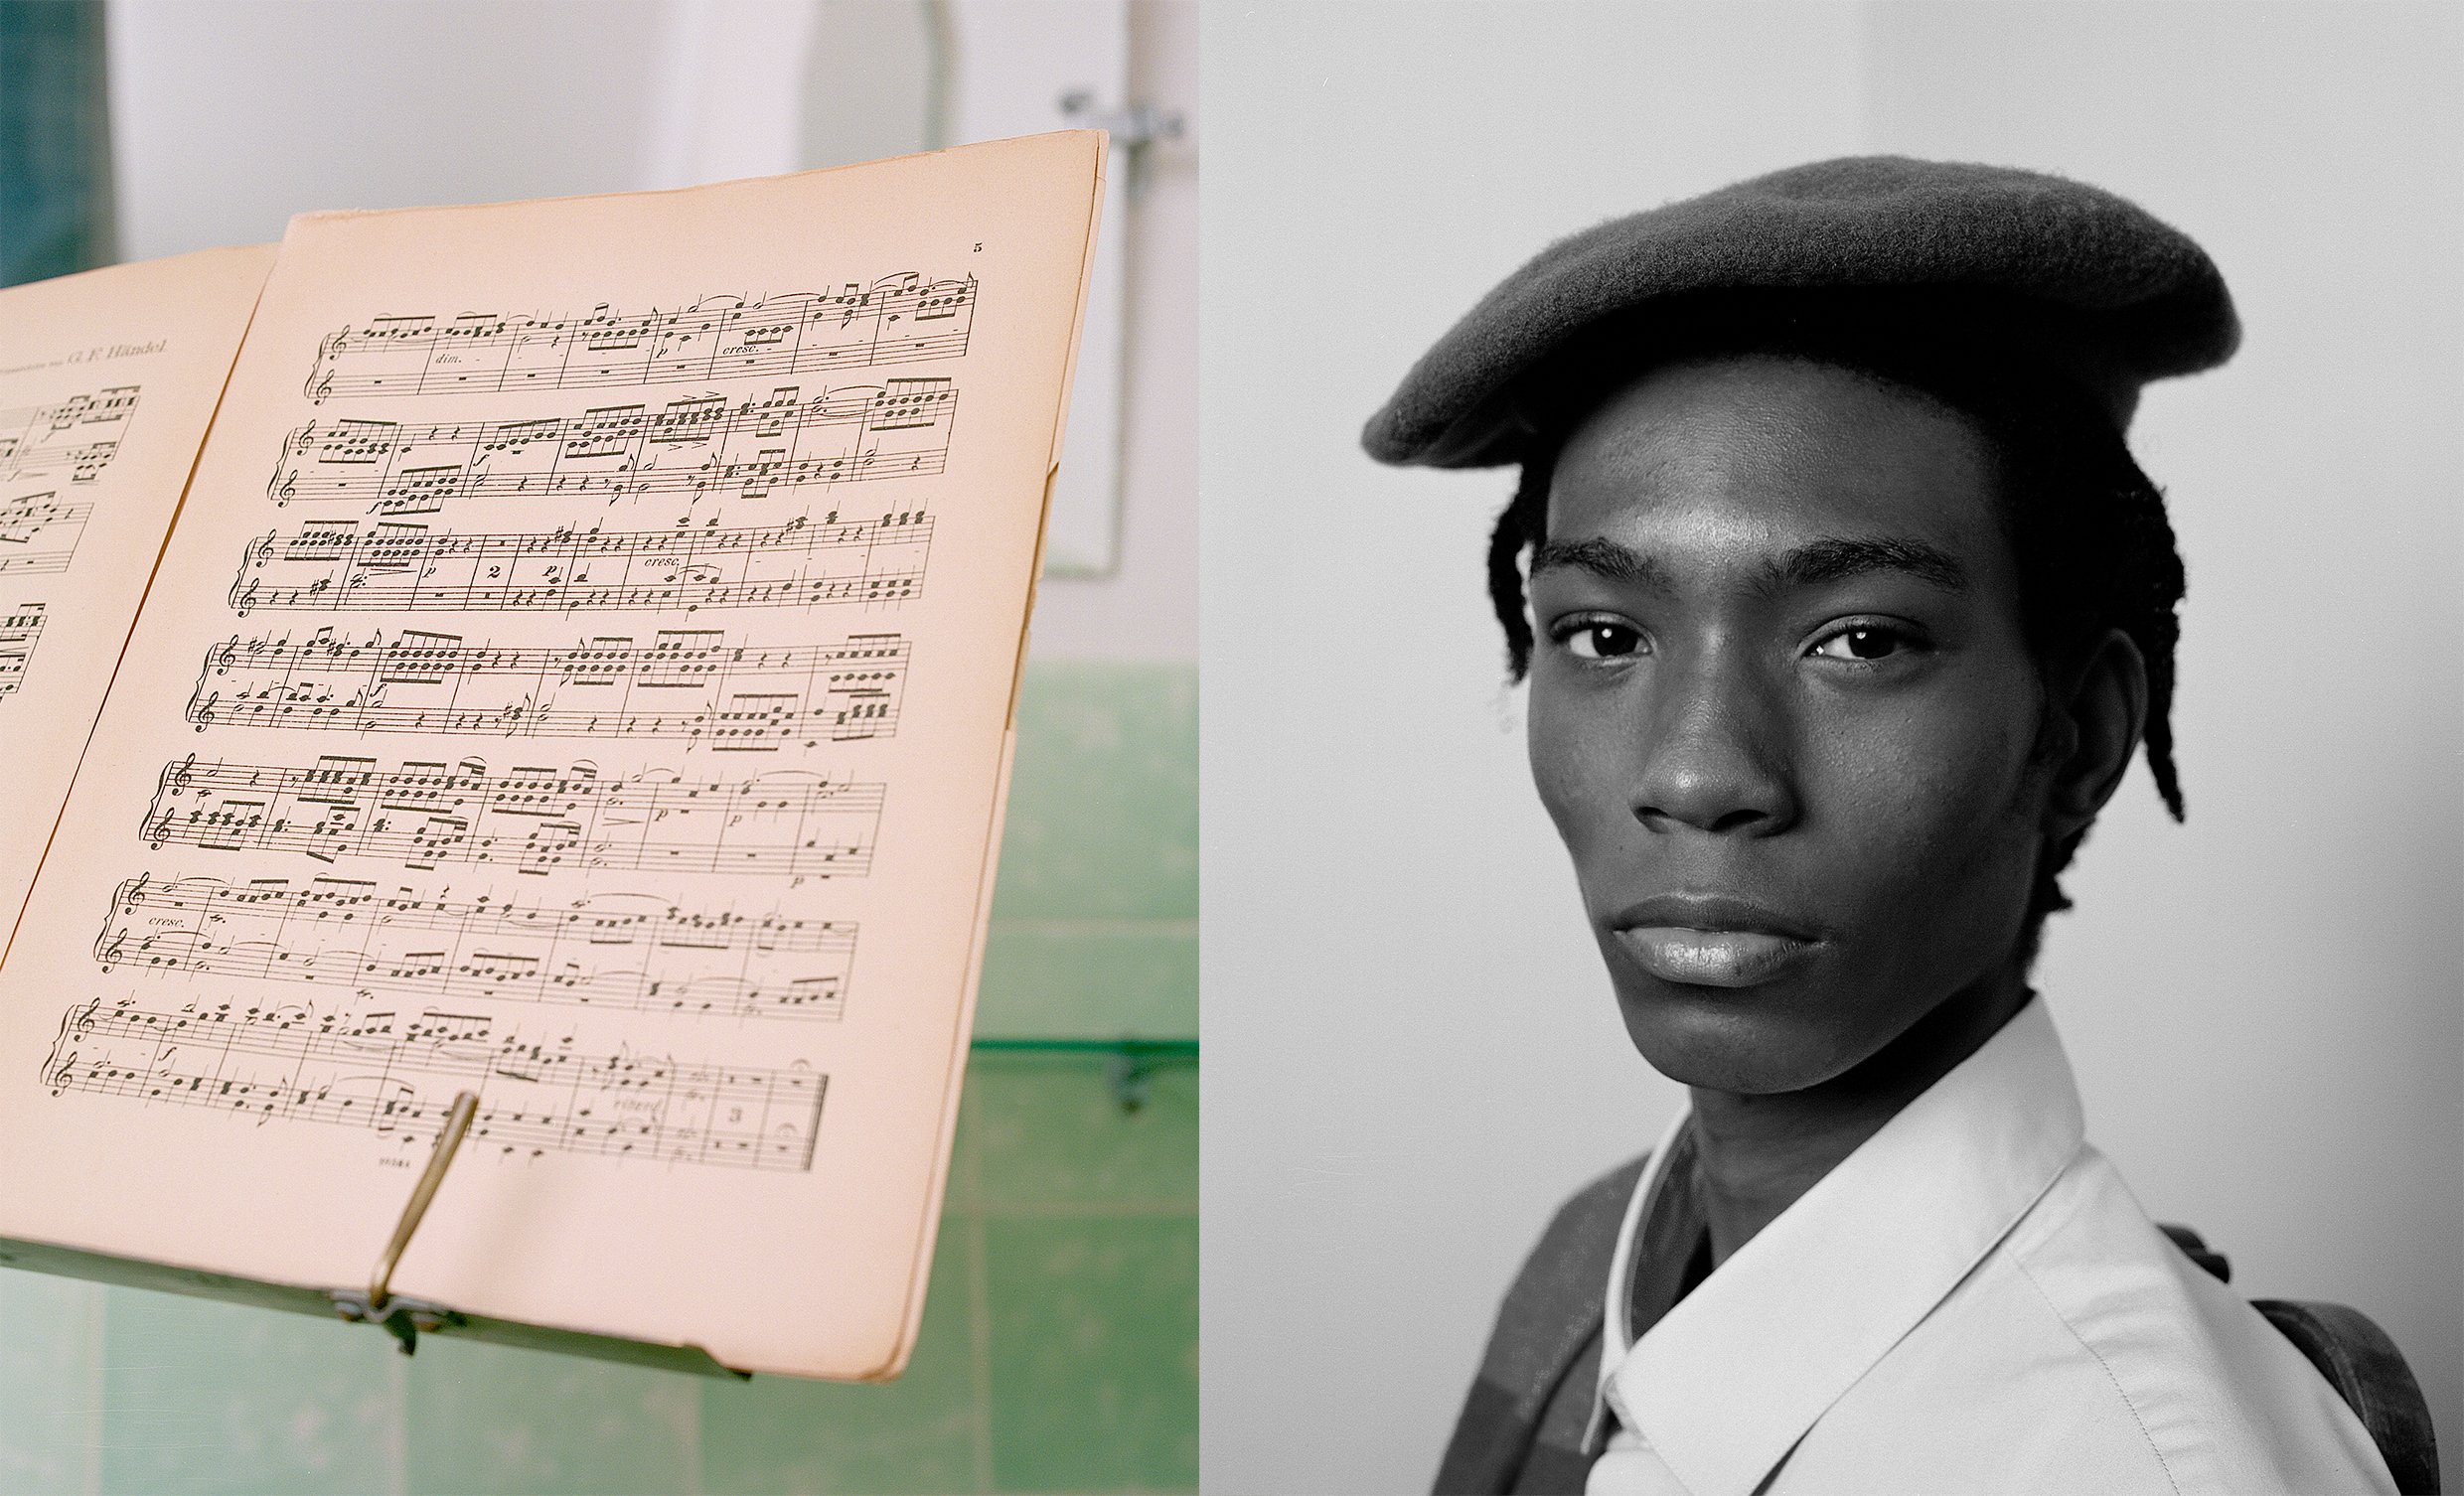 G. F. Händel.
5
dim.
p
cresc.
f
f
p
2
p
cresc.
f
p
p
p
cresc.
f
ritard.
3